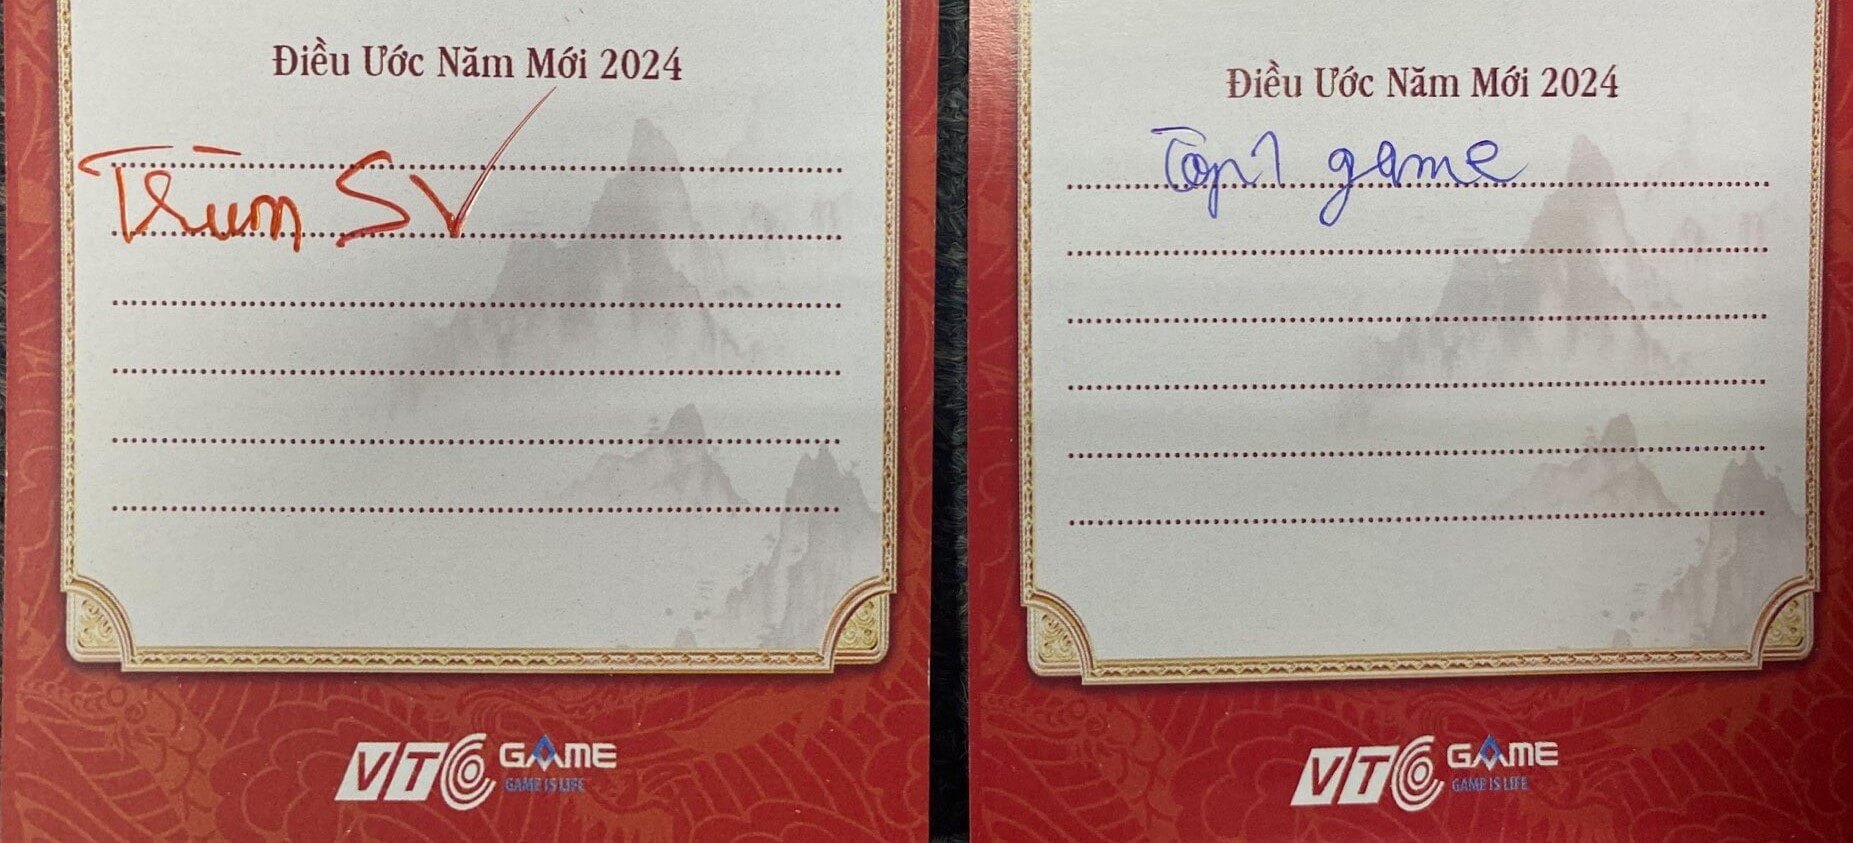 Điều Ước Năm Mới 2024
Trùm SV
VTC GAME
GAME IS LIFE
Điều Ước Năm Mới 2024
Top 1 game
VTC GAME
GAME IS LIFE